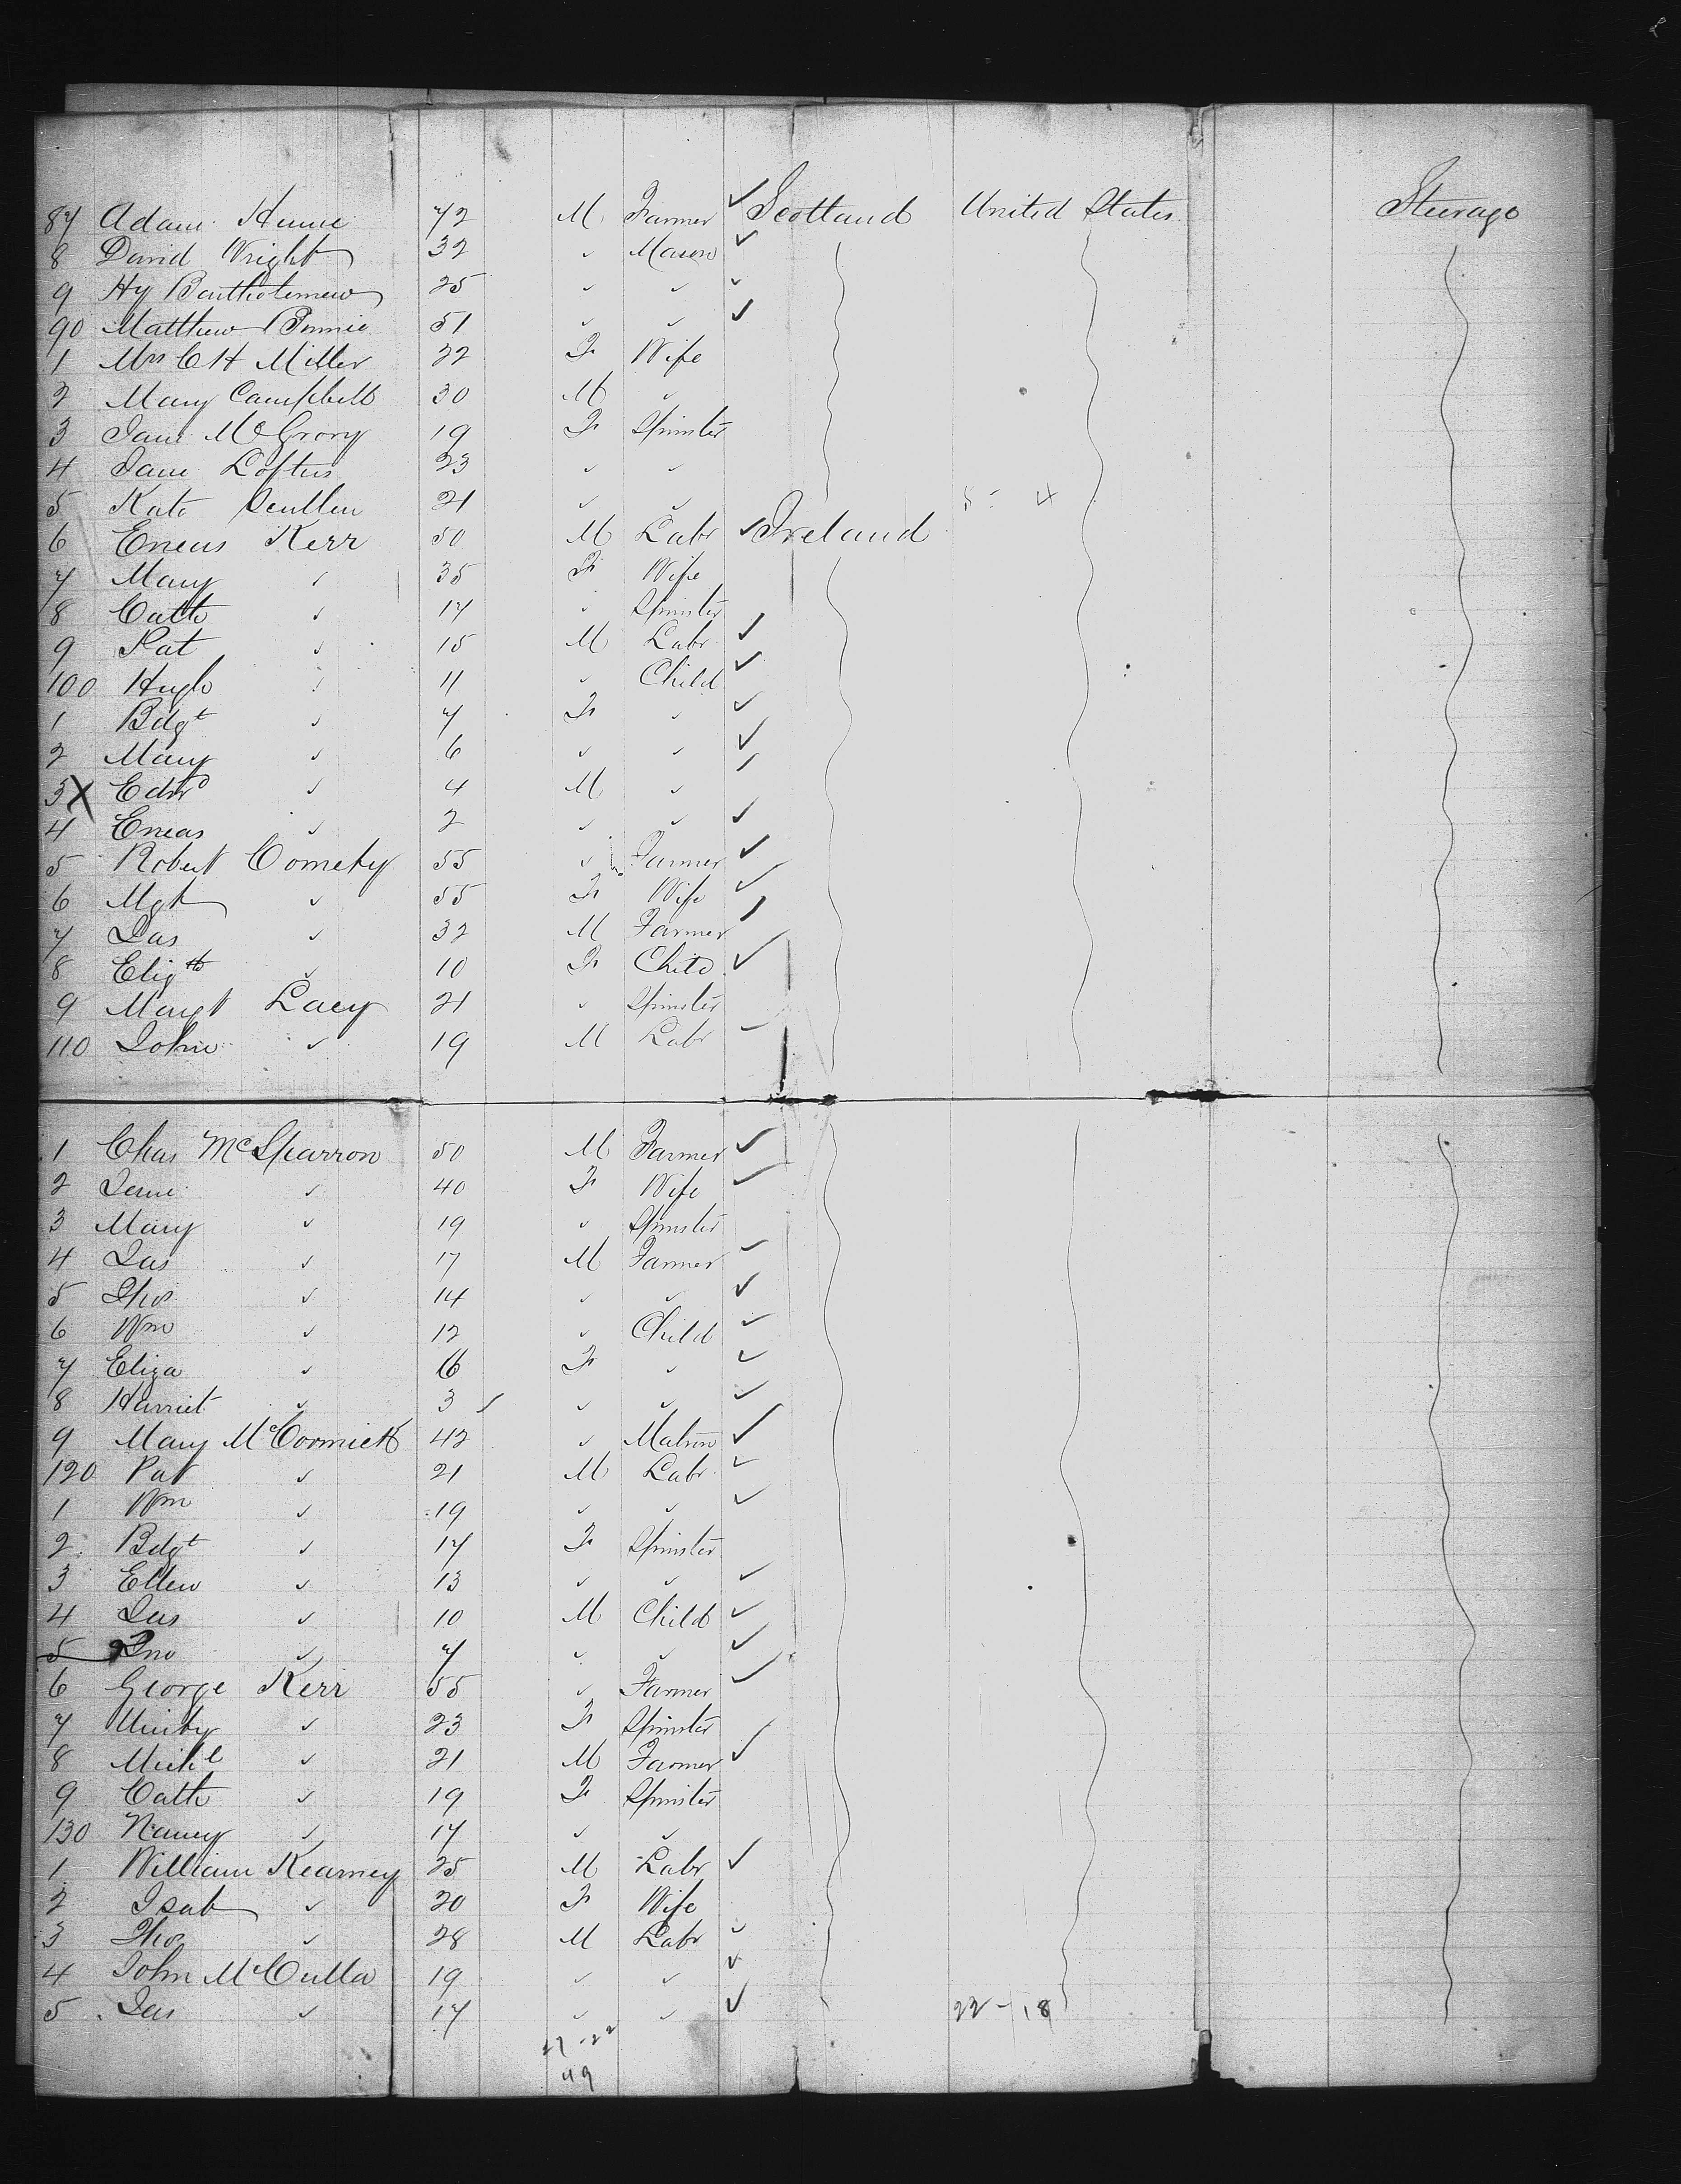 87 Adam Hume 42 M Farmer ✓ Scotland United States Steerage
8 David Wright 32 ✓ Mason ✓
9 Hy Bartholemew 25 ✓ ✓ ✓
90 Matthew Binnie 51 ✓ ✓ ✓
1 Mrs C H Miller 22 F Wife
2 Mary Campbell 30 M ✓
3 Jane McGrory 19 F Spinster
4 Jane Loftus 23 ✓ ✓
5 Kate Scullen 21 ✓ ✓ 5 - 4
6 Eneas Kerr 50 M Labr ✓ Ireland
7 Mary ✓ 35 F Wife
8 Cath ✓ 17 ✓ Spinster
9 Pat ✓ 15 M Labr ✓
100 Hugh ✓ 11 ✓ Child ✓
1 Bdgt ✓ 7 F ✓ ✓
2 Mary ✓ 6 ✓ ✓ ✓
3 X Edwd ✓ 4 M ✓ ✓
4 Eneas ✓ 2 ✓ ✓ ✓
5 Robert 55 ✓ Farmer ✓
6 Mgt ✓ 55 F Wife ✓
7 Jas ✓ 32 M Farmer ✓
8 Elizth ✓ 10 F Child ✓
9 Margt Lacy 21 ✓ Spinster
110 John ✓ 19 M Labr ✓
1 Chas McSparron 50 M Farmer ✓
2 Jane ✓ 40 F Wife ✓
3 Mary ✓ 19 ✓ Spinster
4 Jas ✓ 17 M Farmer ✓
5 Thos ✓ 14 ✓ ✓ ✓
6 Wm ✓ 12 ✓ Child ✓
7 Eliza ✓ 6 F ✓ ✓
8 Harriet ✓ 3 ✓ ✓ ✓ ✓
9 Mary McCormick 42 ✓ Matron ✓
120 Pat ✓ 21 M Labr ✓
1 Wm ✓ 19 ✓ ✓ ✓
2 Bdgt ✓ 17 F Spinster
3 Ellen ✓ 13 ✓ ✓ ✓
4 Jas ✓ 10 M Child ✓
5 Jno ✓ 7 ✓ ✓ ✓
6 George Kerr 55 ✓ Farmer ✓
7 Unity ✓ 23 F Spinster
8 Michl ✓ 21 M Farmer ✓
9 Cath ✓ 19 F Spinster
130 Nancy ✓ 17 ✓ ✓
1 William Kearney 25 M Labr ✓
2 Isab ✓ 20 F Wife
3 Thos ✓ 28 M Labr ✓
4 John McCulla 19 ✓ ✓ ✓
5 Jas ✓ 17 ✓ ✓ ✓ 22 - 18
27 - 22
49